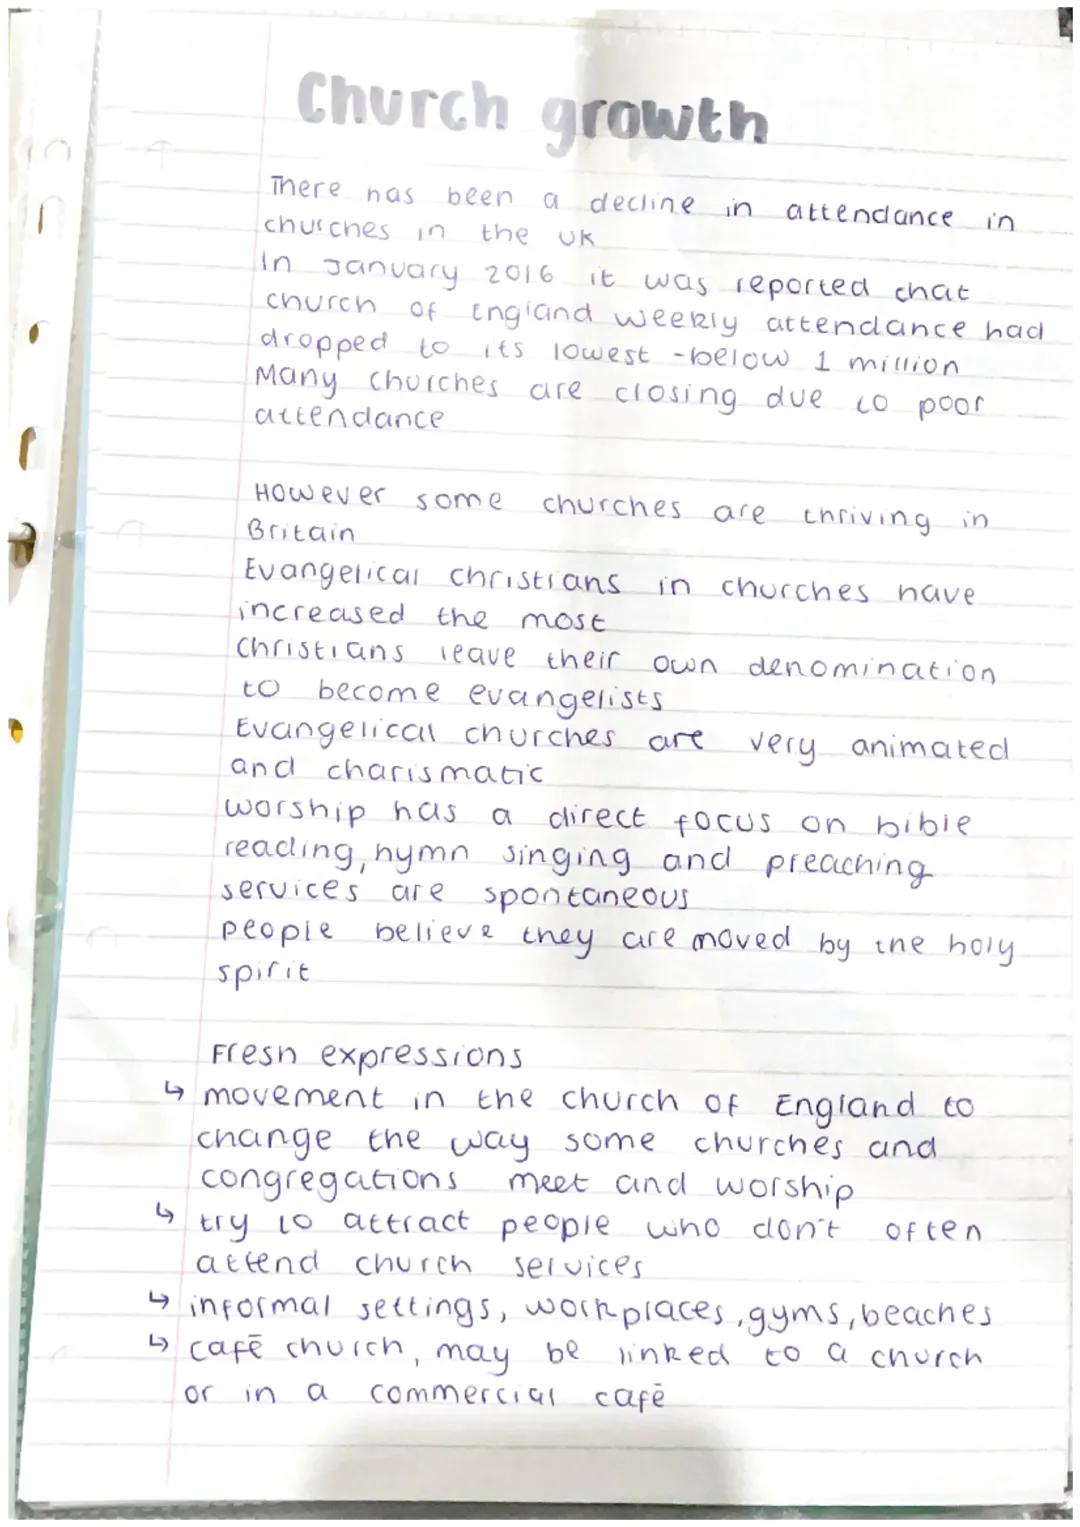 Church growth
There has been a decline in attendance in
churches in the UK
In January 2016 it was reported that
church of England weekly attendance had
dropped to its lowest - below 1 million
Many churches are closing due to poor
attendance
However some churches are thriving in
Britain
Evangelical christians in churches have
increased the most
Christians leave their own denomination
to become evangelists
Evangelical churches are very animated
and charismatic
worship has a direct focus on bible
reading, hymn singing and preaching
services are spontaneous
people believe they are moved by the holy
spirit
Fresh expressions
↳ movement in the church of England to
change the way some churches and
congregations meet and worship
↳ try to attract people who don't often
attend church services
↳ informal settings, workplaces, gyms, beaches
↳ cafē church, may be linked to a church
or in a commercial cafē